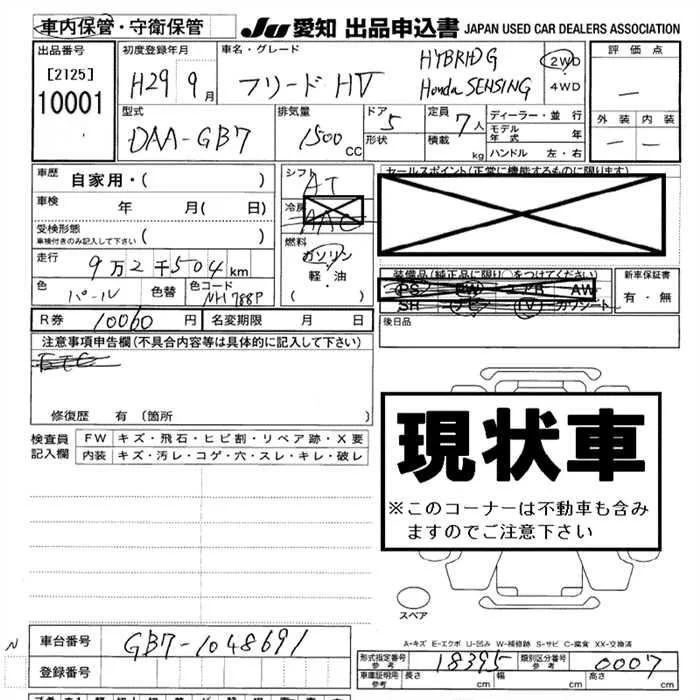 車内保管・守衛保管
JU 愛知 出品申込書 JAPAN USED CAR DEALERS ASSOCIATION
出品番号 初度登録年月 車名・グレード 評価点
[2125]
10001
H29 9月
フリード HV
HYBRID G
Honda SENSING
2WD
4WD
ー
外装 内装
ー ー
型式 排気量 ドア 定員 ディーラー・並行
DAA-GB7 1500CC 5 7人
形状 積載 kg
モデル年式 年
ハンドル 左・右
車歴 自家用・( )
車検 年 月( 日)
受検形態
車検付きのみ記入して下さい ( )
走行 9万2千504km
色 パール 色替 色コード NH788P
シフト AT
冷房 AAC
燃料
ガソリン
軽・油
( )
セールスポイント(正常に機能するものに限ります)
装備品(純正品に限り○をつけてください) 新車保証書
PS PW エアB AW
SR ナビ TV カワシート
有・無
R券 10060円 名変期限 月 日
後日品
注意事項申告欄(不具合内容等は具体的に記入して下さい)
ETC
修復歴 有(箇所 )
検査員記入欄
FW キズ・飛石・ヒビ割・リペア跡・X要
内装 キズ・汚レ・コゲ・穴・スレ・キレ・破レ
現状車
※このコーナーは不動車も含み
ますのでご注意下さい
スペア
A-キズ E-エクボ U-凹み W-補修跡 S-サビ C-腐食 XX-交換済
N 車台番号 GB7-1048691
登録番号
形式指定番号 参考 18395 類別区分番号 参考 0007
車庫証明用 参考 長さ cm 幅 cm 高さ cm